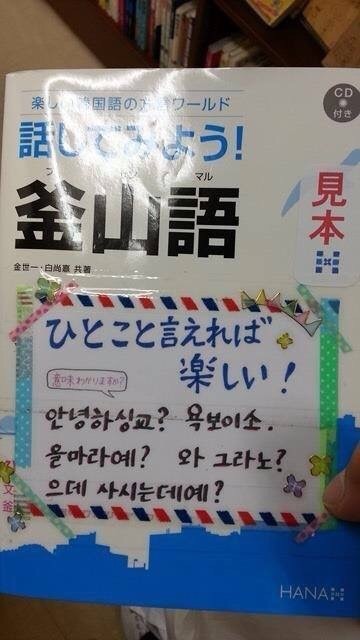 楽しい韓国語の方言ワールド
CD
付き
話してみよう!
マル
釜山語
見本
金世一・白尚憙 共著
ひとこと言えれば
楽しい!
意味わかりますか?
안녕하싱교? 욕보이소.
을마라예? 와 그라노?
으데 사시는데예?
文
釜
HANA